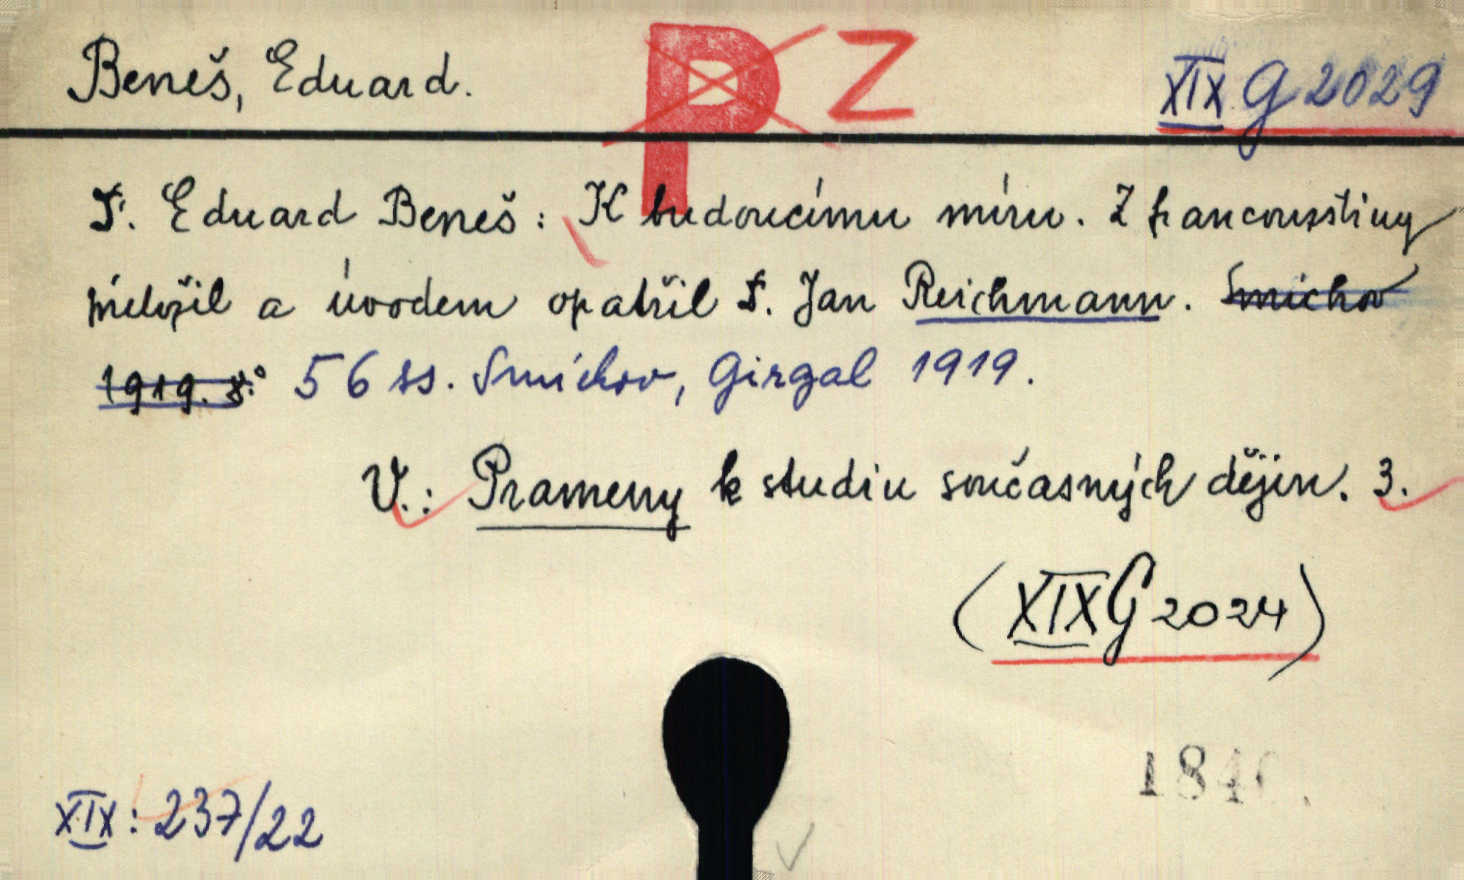 Beneš, Eduard. P Z XIX G 2029
D. Eduard Beneš: K budoucímu míru. Z francouzštiny
přeložil a úvodem opatřil D. Jan Reichmann. Smíchov
1919. 8.° 56 ss. Smíchov, Girgal 1919.
V.: Prameny k studiu současných dějin. 3.
(XIX G 2024)
XIX: 237/22